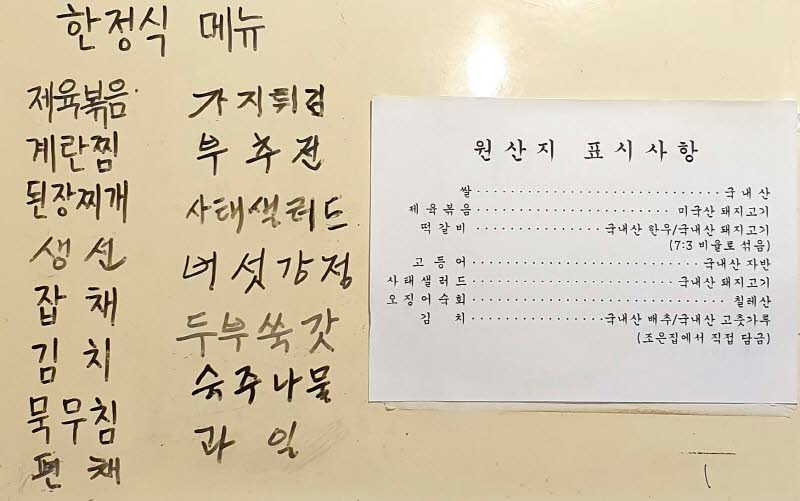 한정식 메뉴
제육볶음
계란찜
된장찌개
생선
잡채
김치
묵무침
편채
가지튀김
부추전
사태샐러드
버섯강정
두부쑥갓
숙주나물
과일
원산지 표시사항
쌀 국내산
제육볶음 미국산 돼지고기
떡갈비 국내산 한우/국내산 돼지고기
(7:3 비율로 섞음)
고등어 국내산 자반
사태샐러드 국내산 돼지고기
오징어숙회 칠레산
김치 국내산 배추/국내산 고춧가루
(조은집에서 직접 담금)